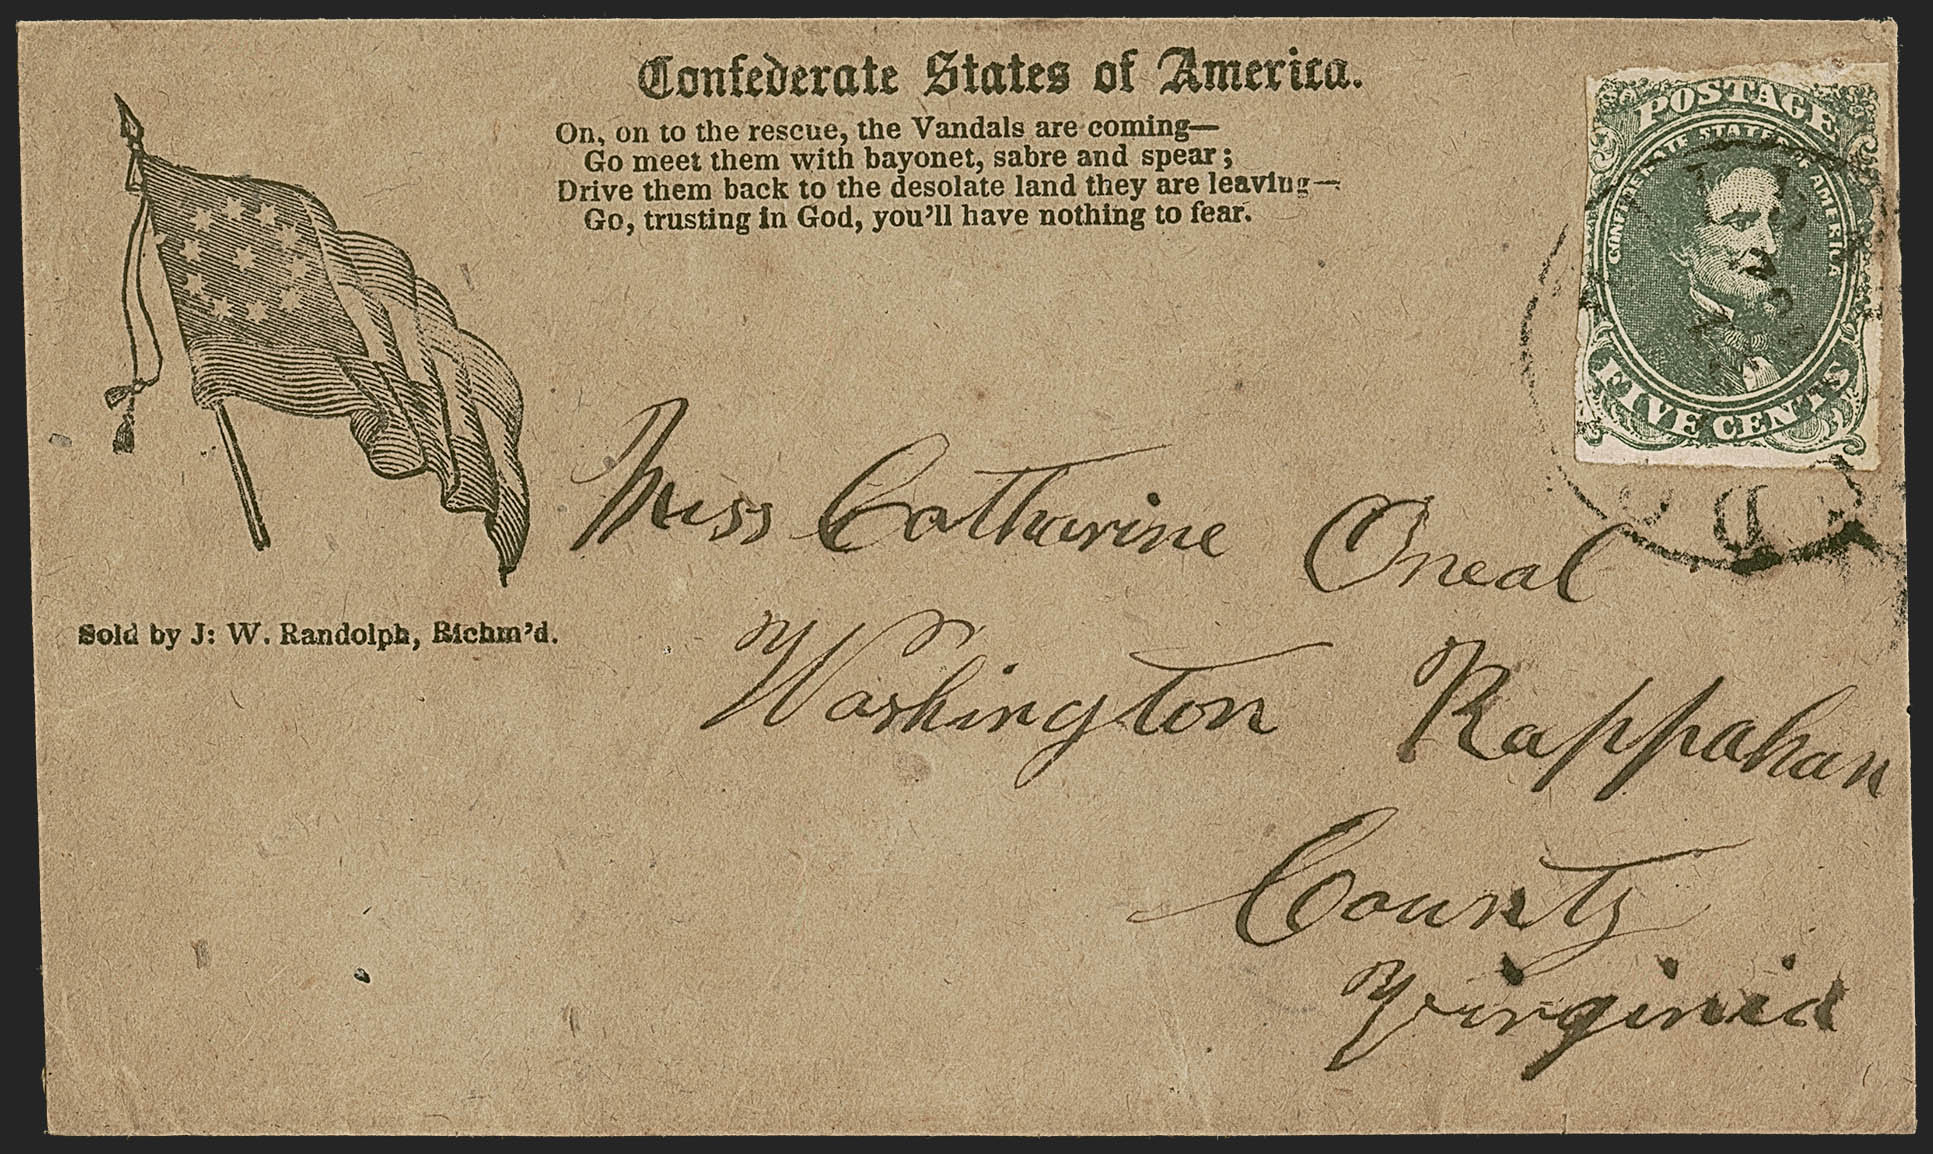 Confederate States of America.
On, on to the rescue, the Vandals are coming—
Go meet them with bayonet, sabre and spear;
Drive them back to the desolate land they are leaving—
Go, trusting in God, you'll have nothing to fear.
POSTAGE
CONFEDERATE STATES OF AMERICA
FIVE CENTS
Sold by J: W. Randolph, Richm'd.
Miss Catharine Oneal
Washington Rappahan
County
Virginia